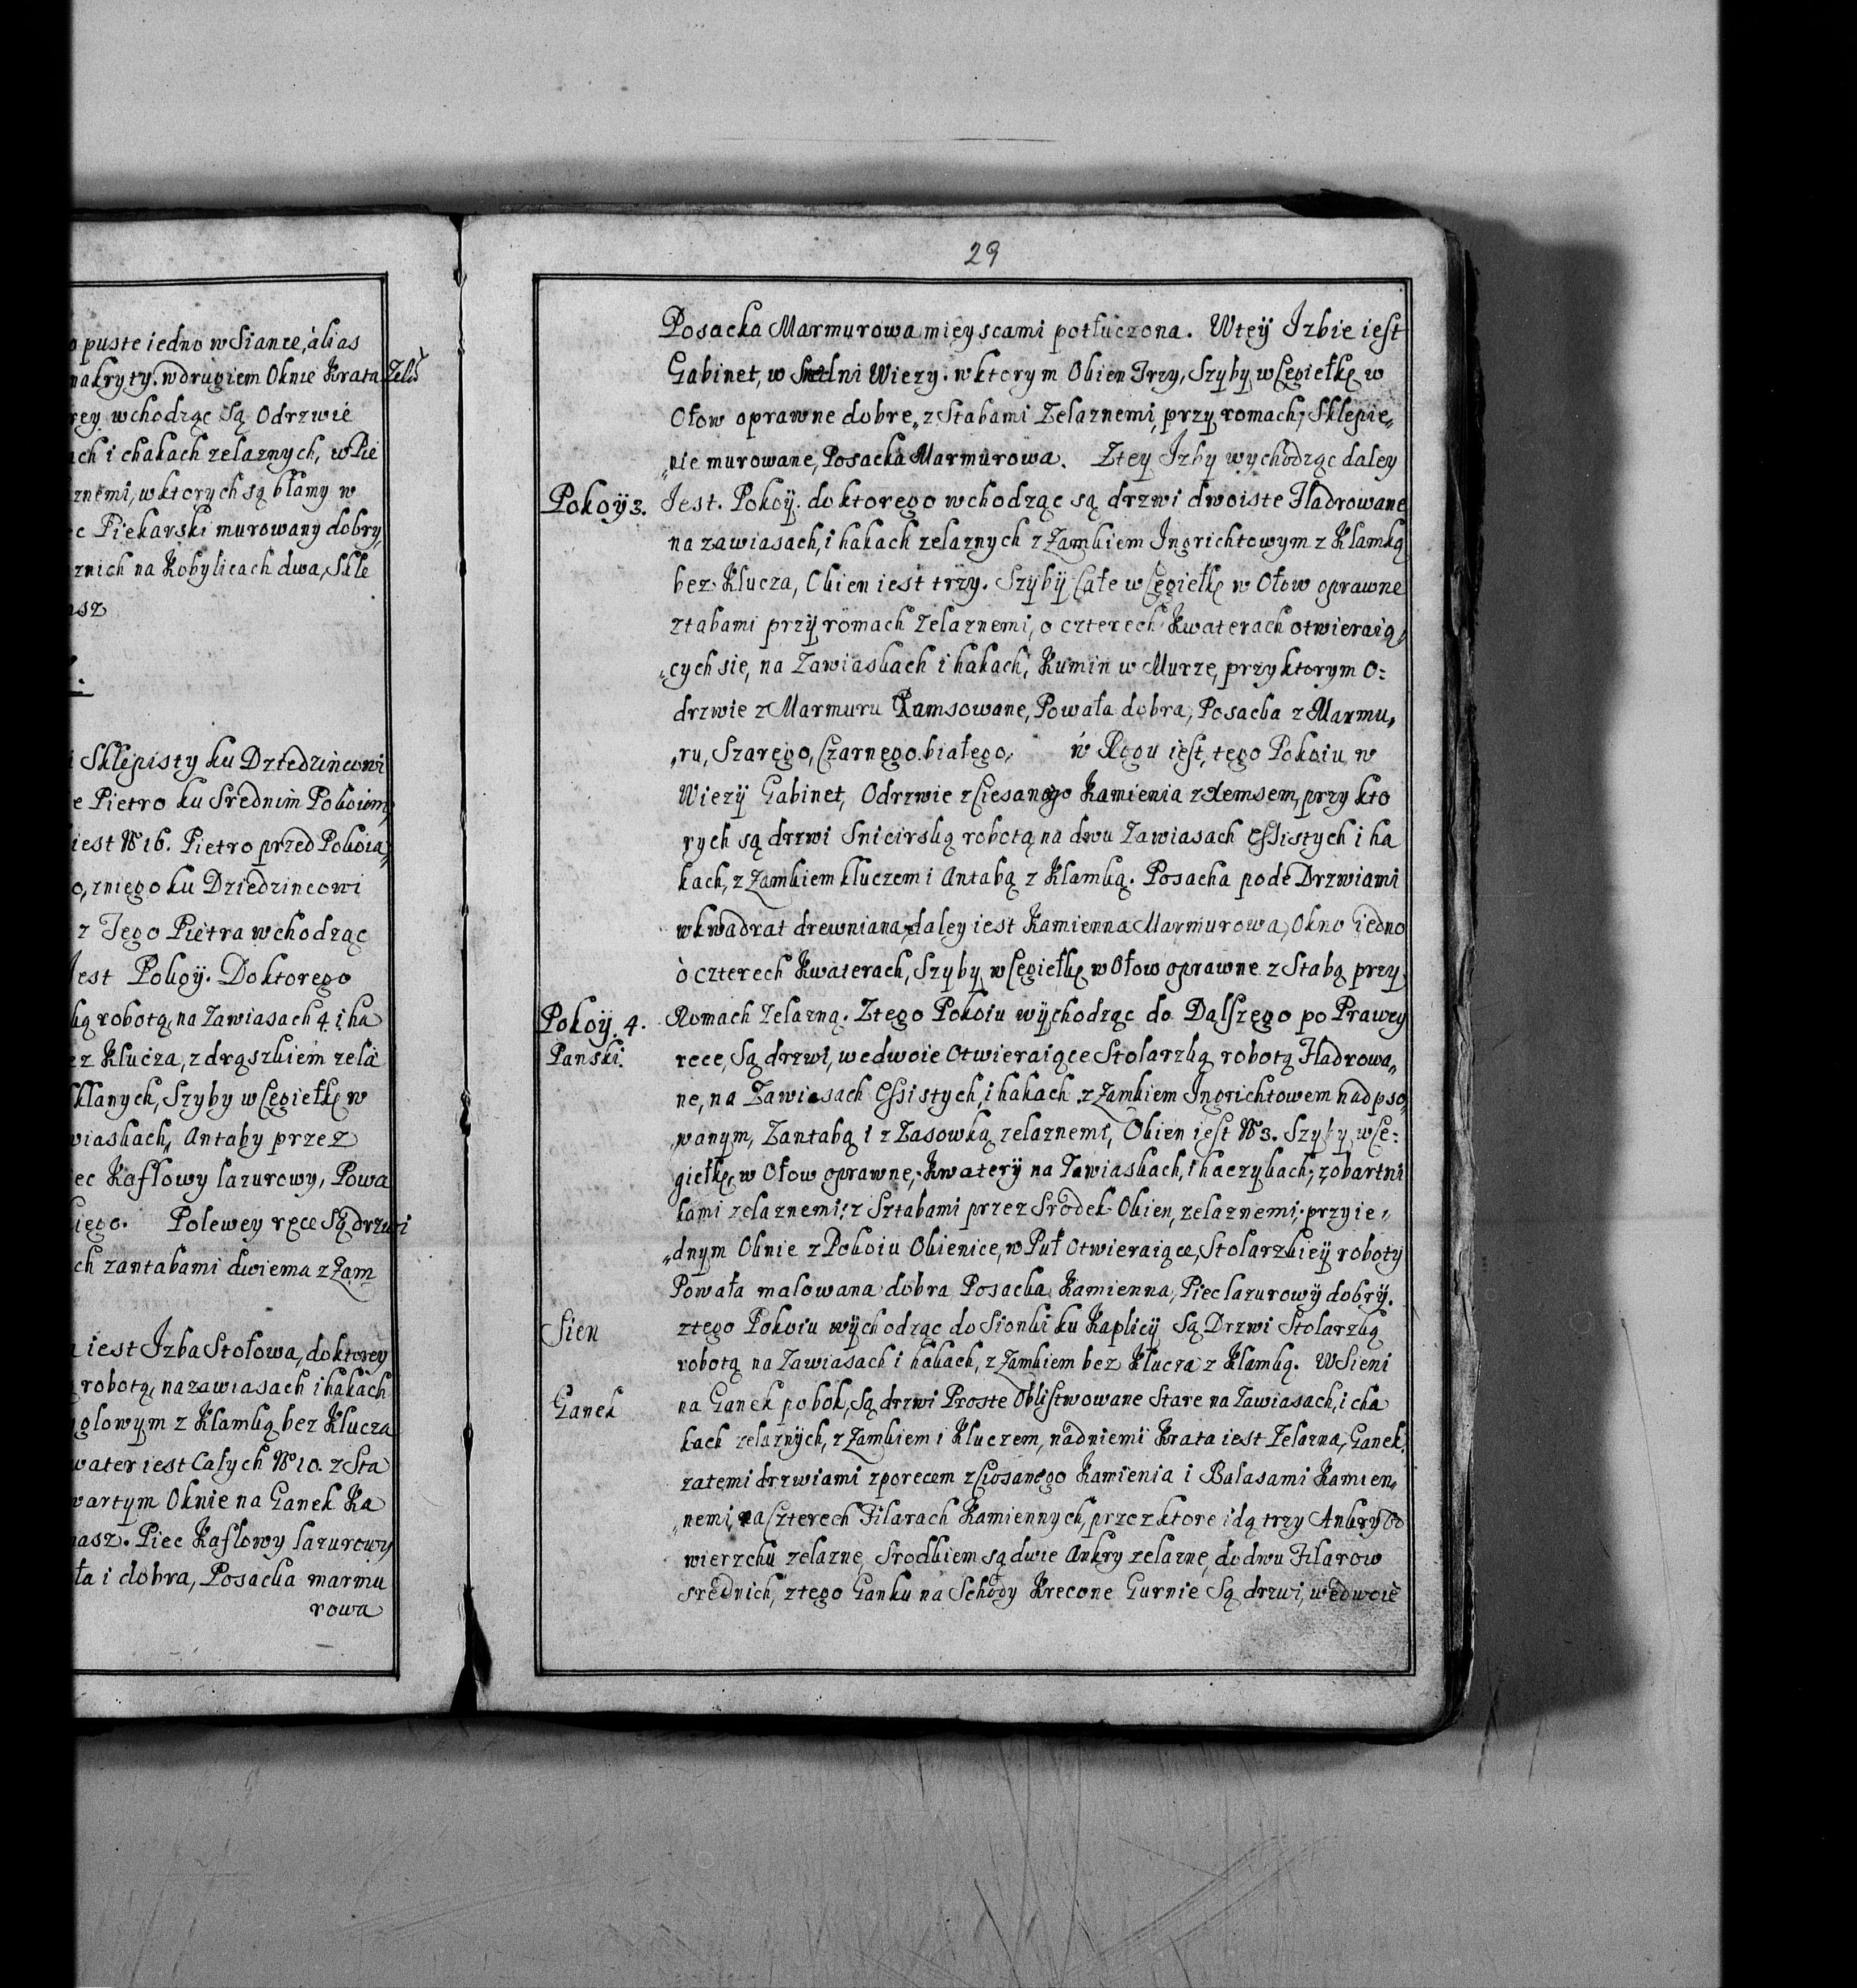 o puste iedno w Siance, alias
nakryty. w drugiem Oknie Krata Zela
rey wchodząc są Odrzwie
ach i chakach zelaznych, w Pie
znemi, w ktorych są błamy w
ec Piekarski murowany dobry,
znich na Kobylicach dwa, Skle
asz
i Sklepisty ku Dziedzincowi
e Pietro ku Srednim Pokoiom,
iest No 16. Pietro przed Pokoia,
o, zniego ku Dziedzincowi
z Tego Pietra wchodząc
Jest Pokoÿ. Do ktorego
ką robotą, na Zawiasach 4. i ha
ez Klucza, z drązkiem zela
klanych, Szyby w Cegiełkę w
wiaskach, Antaby przez
ec Kaflowy lazurowy, Powa
iego. Polewey ręce Są drzwi
ch zantabami dwiema z Zam
a iest Izba Stołowa, do ktorey
ą robotą, na zawiasach i hakach
golowym z Klamką bez Klucza
water iest Całych No 10. z Sta
wartym Oknie na Ganek Ka
nasz. Piec Kaflowy lazurowy
ła i dobra, Posacka marmu
rowa
29
Posacka Marmurowa mieyscami potłuczona. Wteÿ Izbie iest
Gabinet, w Wiezy. w ktorym Okien Trzy, Szyby w Cegiełkę w
Ołow oprawne dobre, z Stabami Zelaznemi, przy romach, Sklepie„
„nie murowane, Posacka Marmurowa. Ztey Izby wychodząc daley
Pokoÿ 3. Jest. Pokoÿ. do ktorego wchodząc są drzwi dwoiste Fladrowane
na zawiasach, i hakach zelaznych z Zamkiem Ingrichtowym z Klamką
bez Klucza, Okien iest trzy. Szybÿ Całe w Cegiełkę w Ołow oprawne
ztabami przÿ romach Zelaznemi, o czterech Kwaterach otwieraią„
„cych sie, na Zawiaskach i hakach, Kumin w Murze, przy ktorym O:
drzwie z Marmuru Ramsowane, Powała dobra, Posacka z Marmu„
„ru, Szarego, Czarnego białego, w Rogu iest, tego Pokoiu w
Wiezÿ Gabinet, Odrzwie z Ciesanego Kamienia z demsem, przy kto
rych są drzwi Snicirską robotą na dwu Zawiasach Essistych i ha
kach, z Zamkiem kluczem i Antabą z Klamką. Posacka pode Drzwiami
w kwadrat drewniana, daley iest Kamienna Marmurowa, Okno iedno
o czterech Kwaterach, Szyby w Cegiełkę w Ołow oprawne z Stabą przy
Pokoÿ. 4. Romach Zelazną. Ztego Pokoiu wÿchodząc do Dalszego po Prawey
Panski. rece, Są drzwi, wedwoie Otwieraiące Stolarzką robotą Fladrowa„
ne, na Zawiasach Essistych, i hakach z Zamkiem Ingrichtowem nadpso„
„wanym, Zantabą i z Zasowką zelaznemi, Okien iest No 3. Szyby w Ce:
giełkę, w Ołow oprawne, Kwaterÿ na Zawiaskach, i haczykach, z obartni
kami zelaznemi, z Sztabami przez Srodek Okien, zelaznemi, przy ie„
„dnym Oknie z Pokoiu Okienice, w Puł Otwieraiące, Stolarzkieÿ roboty
Powała malowana dobra Posacka Kamienna, Piec lazurowÿ dobrÿ.
Sien ztego Pokoiu wÿchodząc do Sionki ku Kaplicÿ Są Drzwi Stolarzką
robotą na Zawiasach i hakach, z Zamkiem bez Klucza z Klamką. W Sieni
Ganek na Ganek po bok, Są drzwi Proste Oblistwowane Stare na Zawiasach, i cha
kach zelaznÿch, z Zamkiem i Kluczem, nad niemi Krata iest Zelazna, Ganek
zatemi drzwiami z porecem z Ciosanego Kamienia i Balasami Kamien„
„nemi, na Czterech Filarach Kamiennych, przez ktore idą trzy Ankry
wierzchu zelazne, Srodkiem są dwie Ankry zelazne, do dwu Filarow
srednich, ztego Ganku na Schody Krecone Gurnie Są drzwi, wedwoie